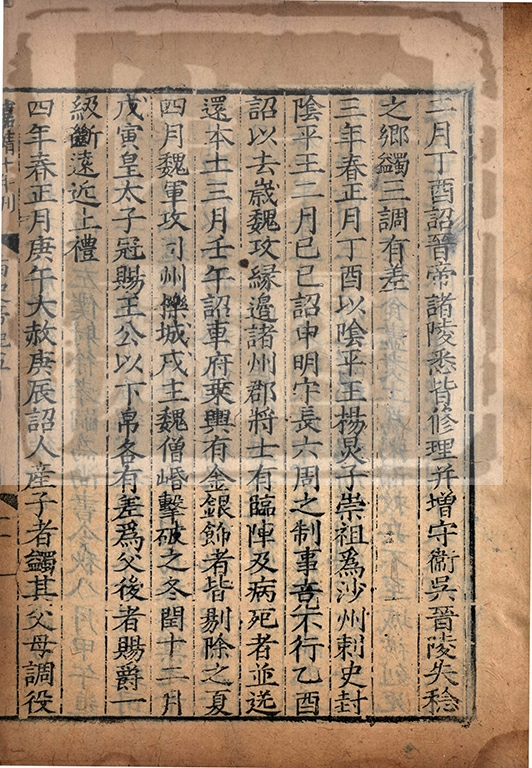 二月丁酉詔晉帝諸陵悉皆修理并增守衛吳晉陵失稔
之鄉蠲三調有差
三年春正月丁酉以陰平王楊炅子崇祖爲沙州刺史封
陰平王二月己巳詔申明守長六周之制事竟不行乙酉
詔以去歲魏攻緣邊諸州郡將士有臨陣及病死者並送
還本土三月壬午詔車府乘輿有金銀飾者皆剔除之夏
四月魏軍攻司州櫟城戍主魏僧㟭擊破之冬閏十二月
戊寅皇太子冠賜王公以下帛各有差爲父後者賜爵一
級斷遠近上禮
四年春正月庚午大赦庚辰詔人産子者蠲其父母調役